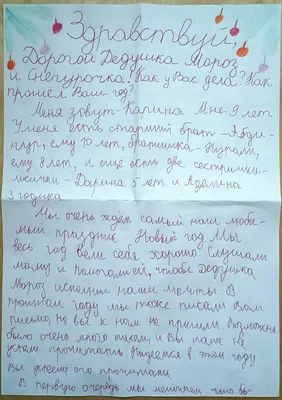 Здравствуй,
Дорогой Дедушка Мороз
и Снегурочка! Как у Вас дела? Как
прошел Ваш год?
Меня зовут - Карина. Мне 9 лет
У меня есть старший брат - Абди-
нур, ему 10 лет, братишка - Нурали,
ему 8 лет, и ещё есть две сестрички-
лисички - Дарина 5 лет и Аделина
3 годика
Мы очень ждём самый наш люби-
мый праздник - Новый год. Мы
весь год вели себя хорошо. Слушали
маму и помогали, чтобы дедушка
Мороз исполнил наши мечты. В
прошлом году мы тоже писали Вам
письмо, но вы к нам не пришли. Возможно
было очень много писем, и Вы наше не
успели прочитать. Надеемся в этом году
Вы успеете его прочитать.
В первую очередь мы мечтаем что бы